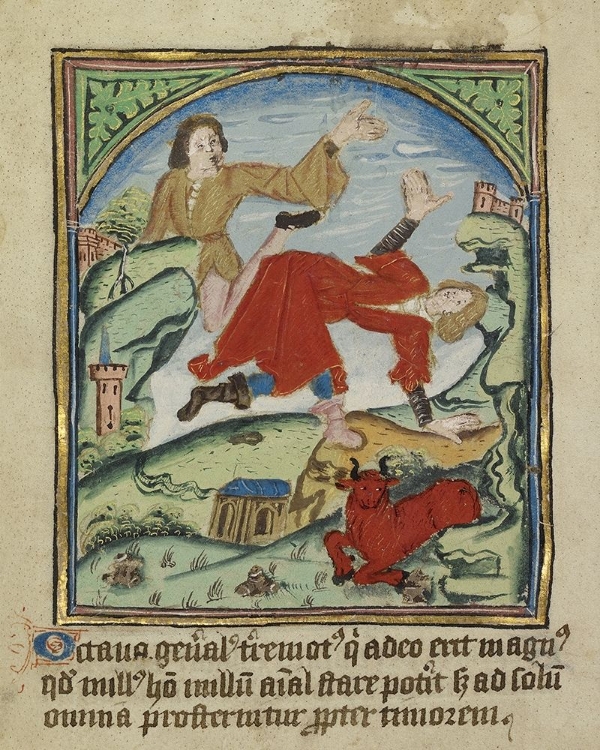 Octaua gen̄alꝰ t̄remotꝰ q̇ adeo erit magnꝰ
qđ nullꝰ hō nullū aīal stare pot̄it ſƷ ad solū
omnia prosternūtur ꝓpter timorem.